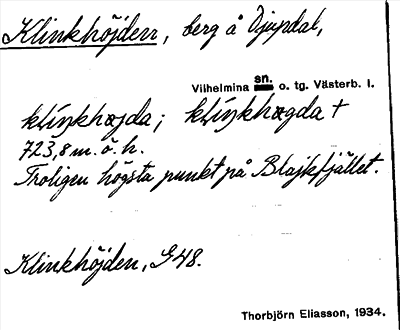 Klinkhöjden, berg å Djupdal,
Vilhelmina sn. o. tg. Västerb. l.
klíŋkhøjda; klíŋkhøgda +
723,8 m. ö. h.
Troligen högsta punkt på Blajkfjället.
Klinkhöjden, G48.
Thorbjörn Eliasson, 1934.